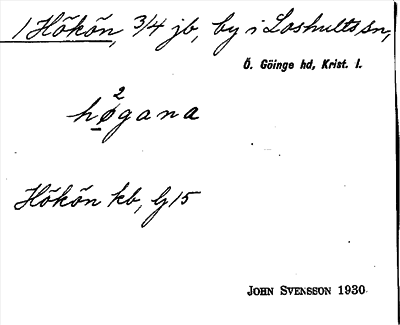 1 Hökön, 3/4 jb, by i Loshults sn,
Ö. Göinge hd, Krist. l.
2
høgana
Hökön kb, G15
JOHN SVENSSON 1930